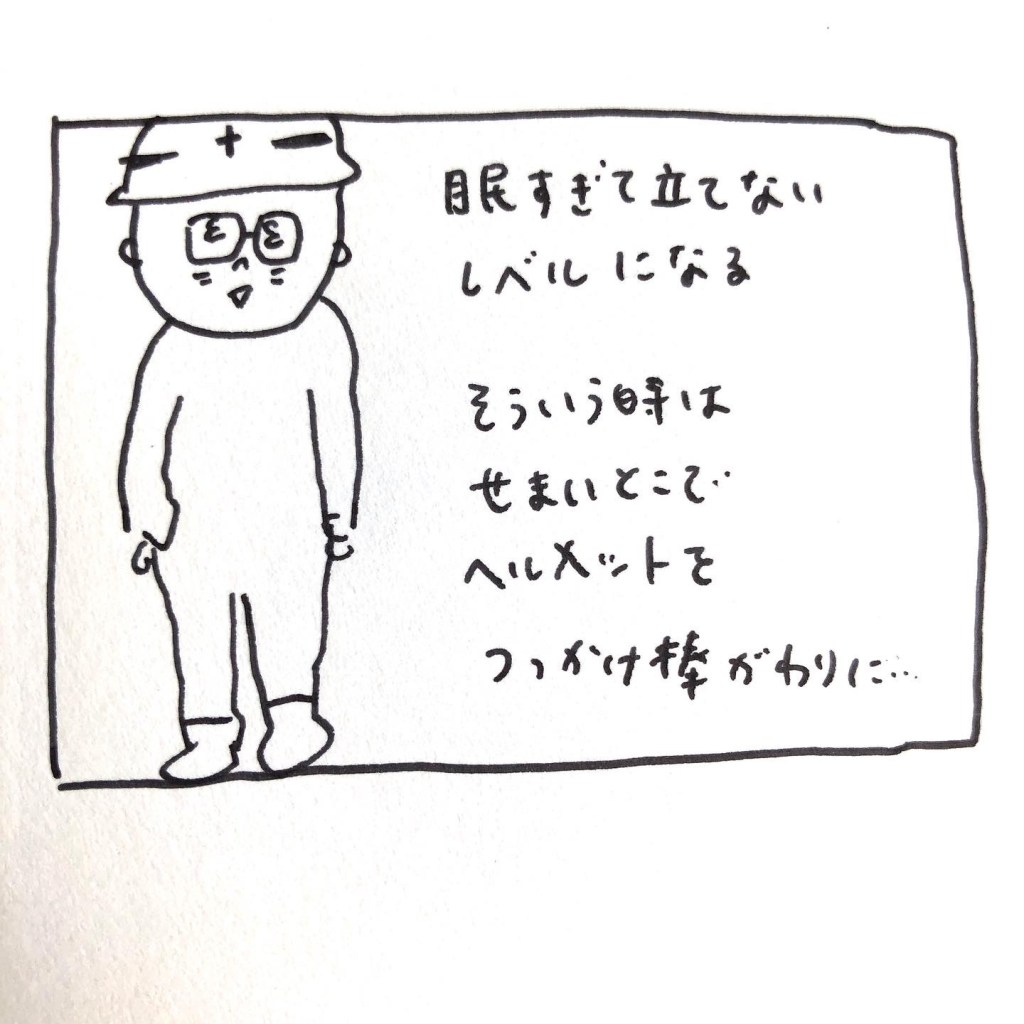 眠すぎて立てない
レベルになる
そういう時は
せまいとこで
ヘルメットを
つっかけ棒がわりに…